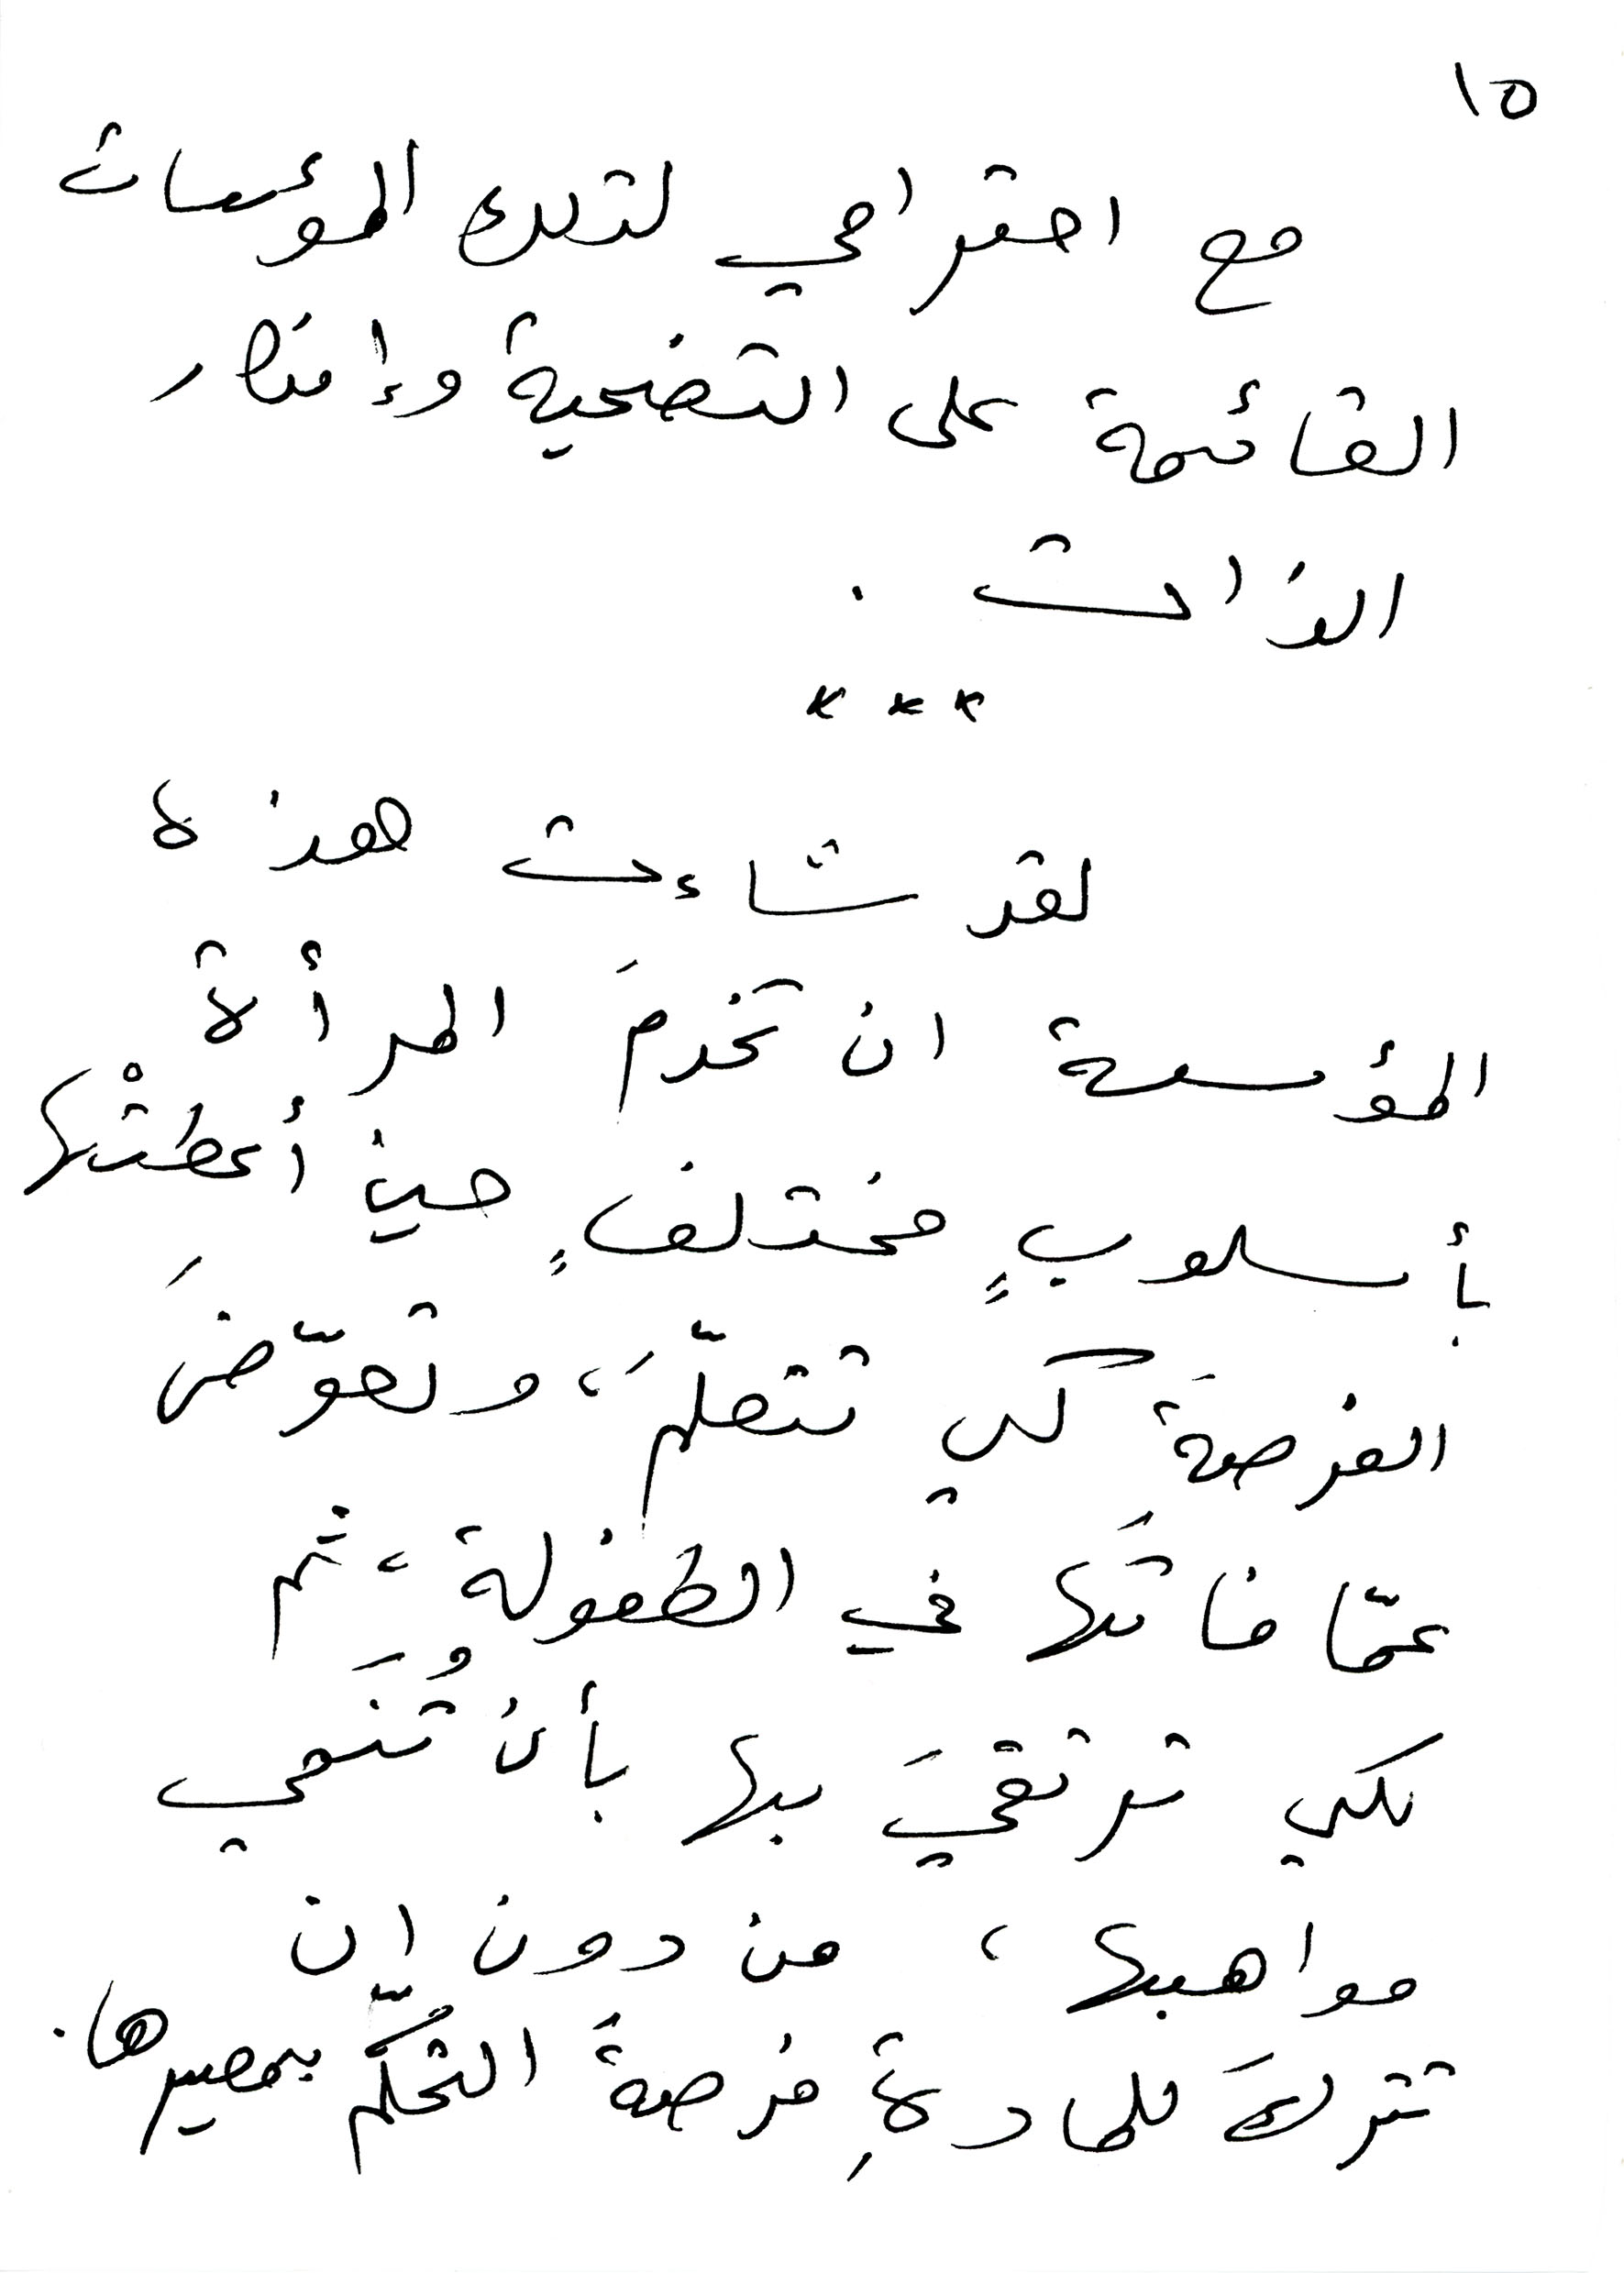 ١٥
مع احترامي لتلك المؤسسات
القائمة على التضحية وإنكار
الذات .
***
لقد شاءت هذه
المؤسسة ان تخدمَ المرأة
بأسلوبٍ مختلفٍ حين أعطتْها
الفرصةَ كي تتعلّمَ، وتعوّضَ
عمّا فاتَها في الطفولة، ثم
لكي ترتقيَ بها بأن تُنَمي
مواهبها، من دون ان
تتركَ للمادةِ فرصةَ التحكّم بمصيرها.